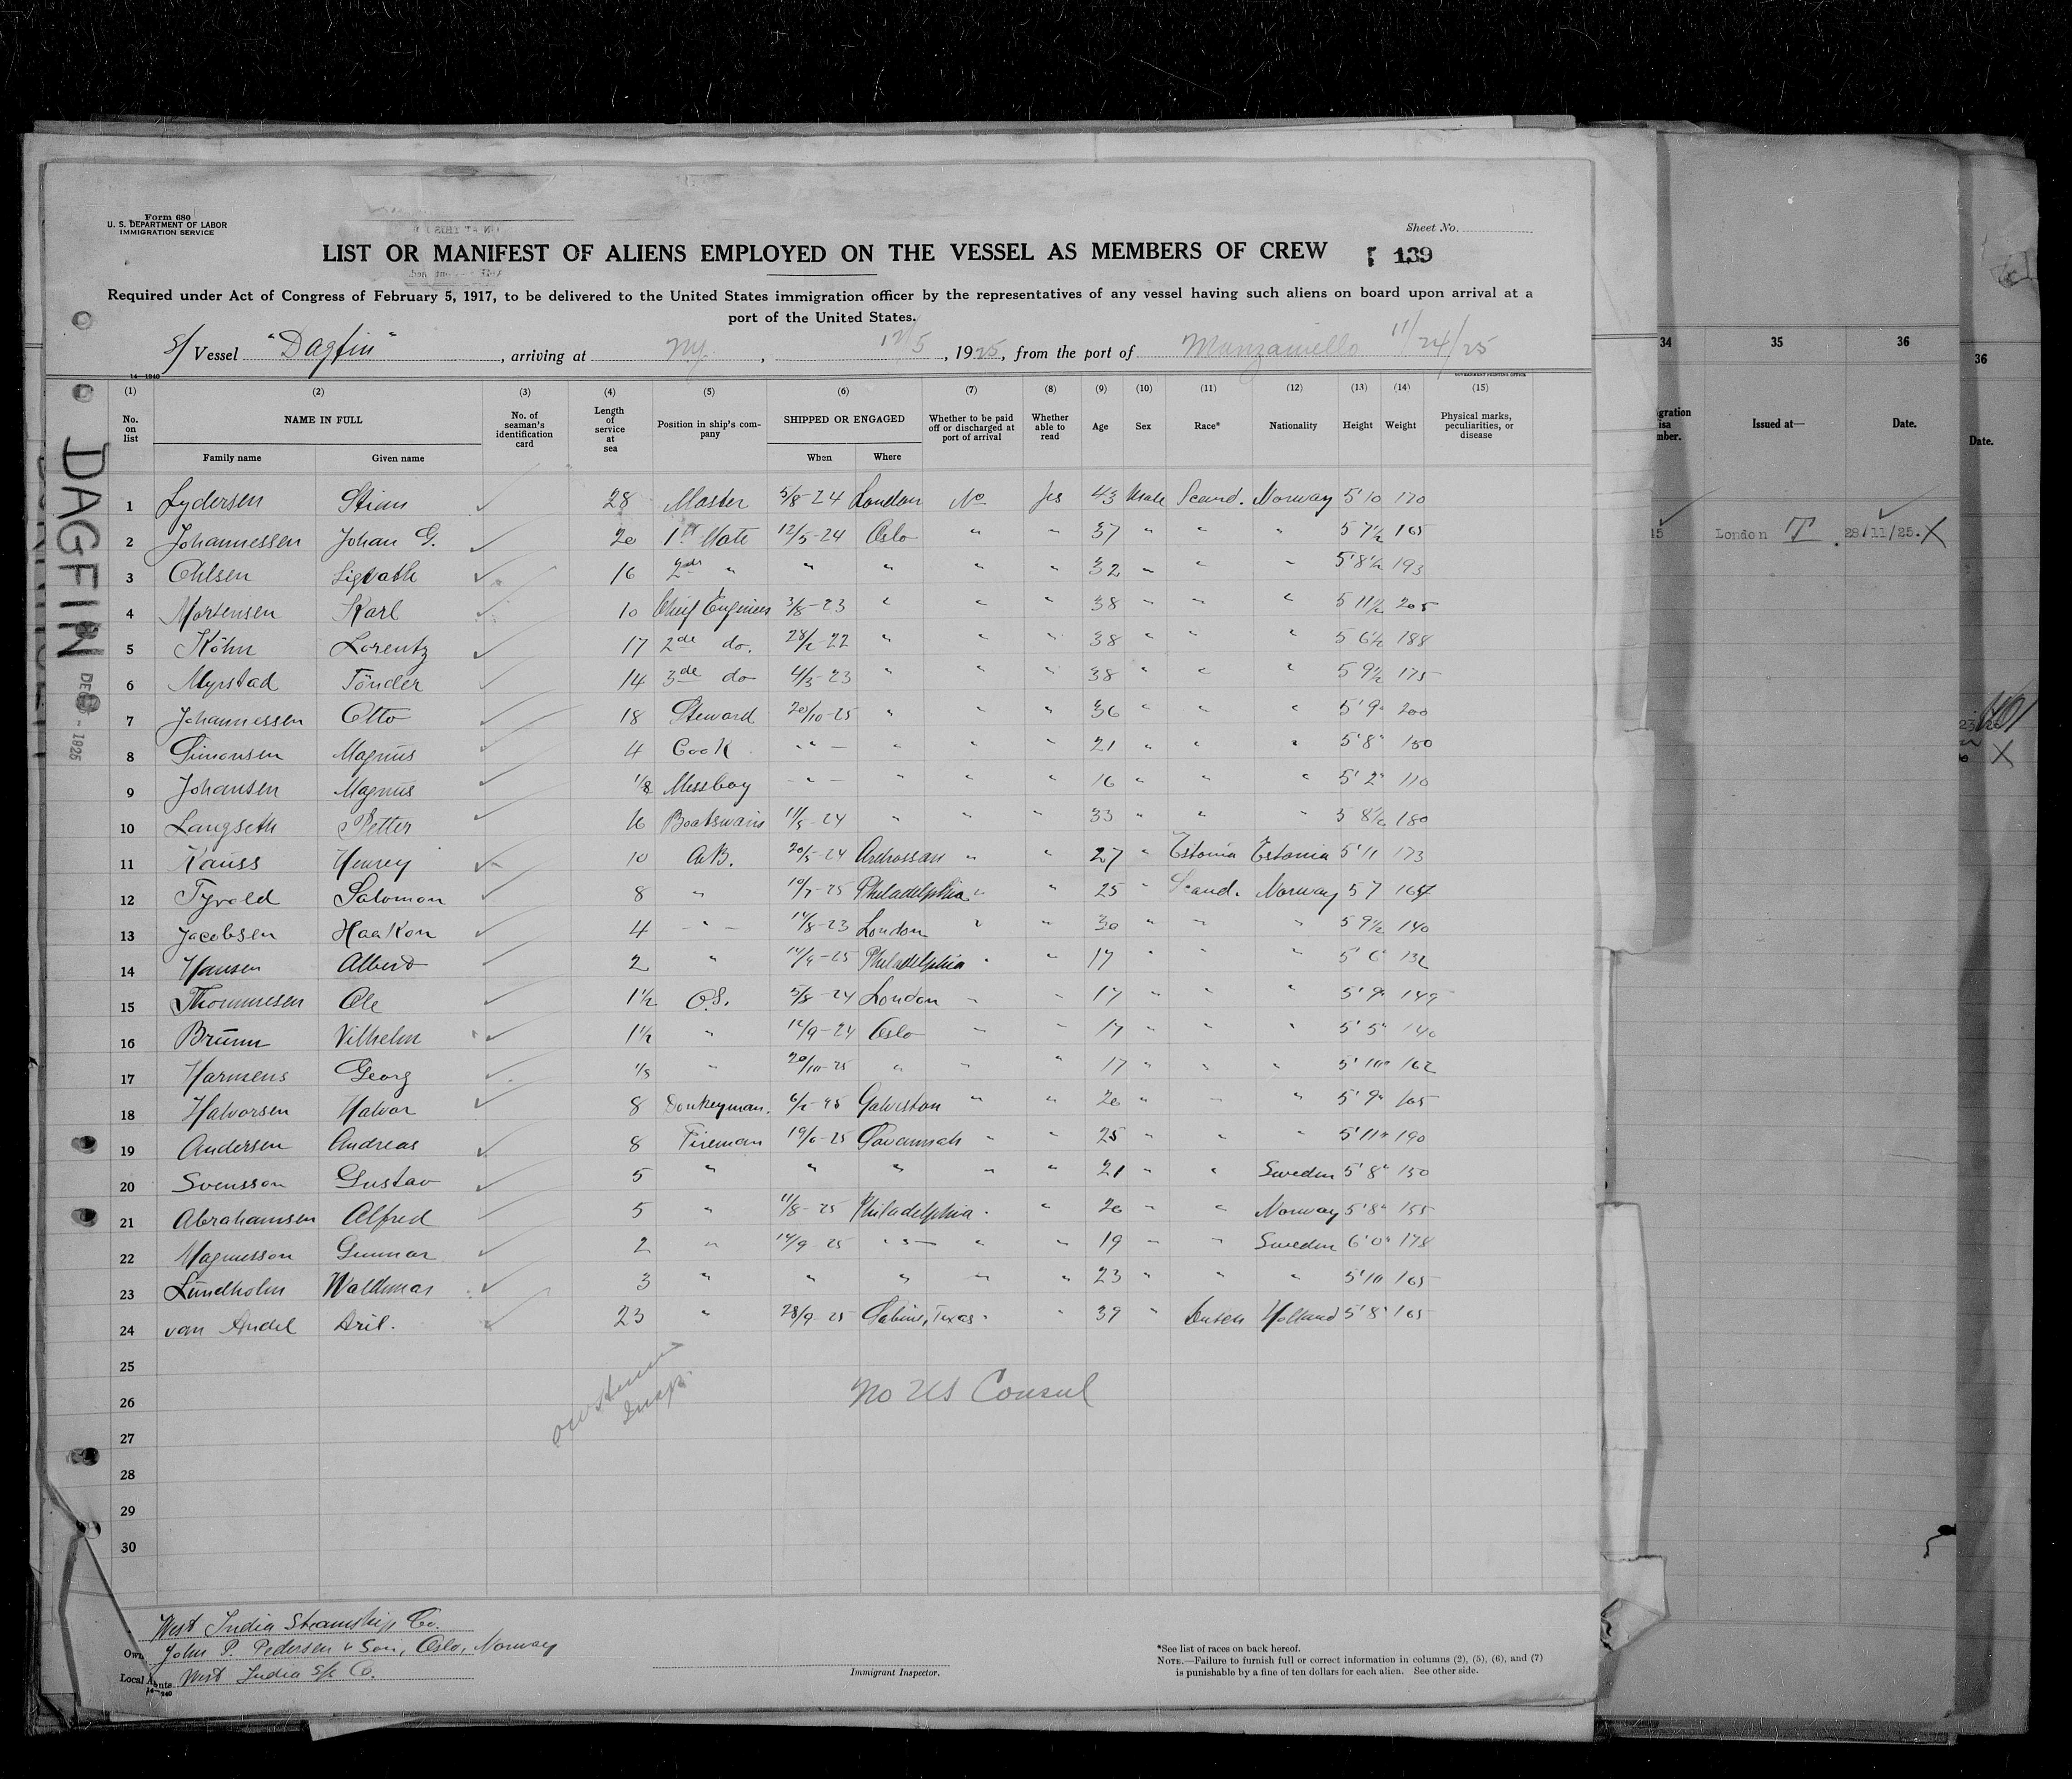 Form 680
U. S. DEPARTMENT OF LABOR
IMMIGRATION SERVICE
Sheet No.
LIST OR MANIFEST OF ALIENS EMPLOYED ON THE VESSEL AS MEMBERS OF CREW 139
Required under Act of Congress of February 5, 1917, to be delivered to the United States immigration officer by the representatives of any vessel having such aliens on board upon arrival at a
port of the United States.
S/ Vessel "Dagfin", arriving at NY., 12/5, 1925, from the port of Manzaniello 11/24/25
14-1240 GOVERNMENT PRINTING OFFICE
(1) (2) (3) (4) (5) (6) (7) (8) (9) (10) (11) (12) (13) (14) (15)
No. on list NAME IN FULL No. of seaman's identification card Length of service at sea Position in ship's company SHIPPED OR ENGAGED Whether to be paid off or discharged at port of arrival Whether able to read Age Sex Race* Nationality Height Weight Physical marks, peculiarities, or disease
Family name Given name When Where
1 Lydersen 28 Master 5/8-24 London No yes 43 Male Scand. Norway 5'10 170
2 Johannessen Johan G. 20 1st Mate 12/5-24 Oslo " " 37 " " " 5 7½ 165
3 Ohlsen Sigvath 16 2de " " " " " 32 " " " 5'8½ 193
4 Mortensen Karl 10 Chief Engineer 3/8-23 " " " 38 " " " 5 11½ 205
5 Köhn Lorentz 17 2de do. 28/2-22 " " " 38 " " " 5 6½ 188
6 Myrstad Tönder 14 3de do 4/3-23 " " " 38 " " " 5 9½ 175
7 Johannessen Otto 18 Steward 20/10-25 " " " 36 " " " 5'9" 200
8 Simonsen Magnus 4 Cook " " " " 21 " " " 5'8" 150
9 Johansen Magnus 1/8 Messboy " " " " 16 " " " 5'2" 110
10 Langseth Petter 16 Boatswain 11/5-24 " " " 33 " " " 5 8½ 180
11 Kauss Henrey 10 A.B. 20/5-24 Ardrossan " " 27 " Estonia Estonia 5'11 173
12 Tyvold Salomon 8 " 10/7-25 Philadelphia " " 25 " Scand. Norway 5 7 164
13 Jacobsen Haakon 4 " 14/8-23 London " " 30 " " " 5 9½ 140
14 Hansen Albert 2 " 14/9-25 Philadelphia " " 17 " " " 5'6" 132
15 Thommesen Ole 1½ O.S. 5/8-24 London " " 17 " " " 5'9" 149
16 Brunn Vilhelm 1½ " 12/9-24 Oslo " " 17 " " " 5'5" 140
17 Harmens Georg 1/8 " 20/10-25 " " " 17 " " " 5'10" 162
18 Halvorsen Halvor 8 Donkeyman. Galveston " " 20 " " " 5'9" 165
19 Andersen Andreas 8 Fireman 19/6-25 Savannah " " 25 " " " 5'11" 190
20 Svensson Gustav 5 " " " " " 21 " " Sweden 5'8" 150
21 Abrahamsen Alfred 5 " 11/8-25 Philadelphia " " 20 " " Norway 5'8" 155
22 Magnusson Gunnar 2 " 14/9-25 " " " 19 " " Sweden 6'0" 178
23 Lundholm Waldemar 3 " " " " " 23 " " " 5'10 165
24 van Andel Aril. 23 " 28/9-25 Sabine, Texas " " 39 " Dutch Holland 5'8" 165
25
26 No US Consul
27
28
29
30
West India Steamship Co.
Own John P. Pedersen & Son, Oslo, Norway
Local Agents West India S/S Co.
14-1240
Immigrant Inspector.
*See list of races on back hereof.
NOTE.—Failure to furnish full or correct information in columns (2), (5), (6), and (7)
is punishable by a fine of ten dollars for each alien. See other side.
DAGFIN
34 35 36
Issued at— Date.
15 London T 28/11/25. X
36
Date.
X